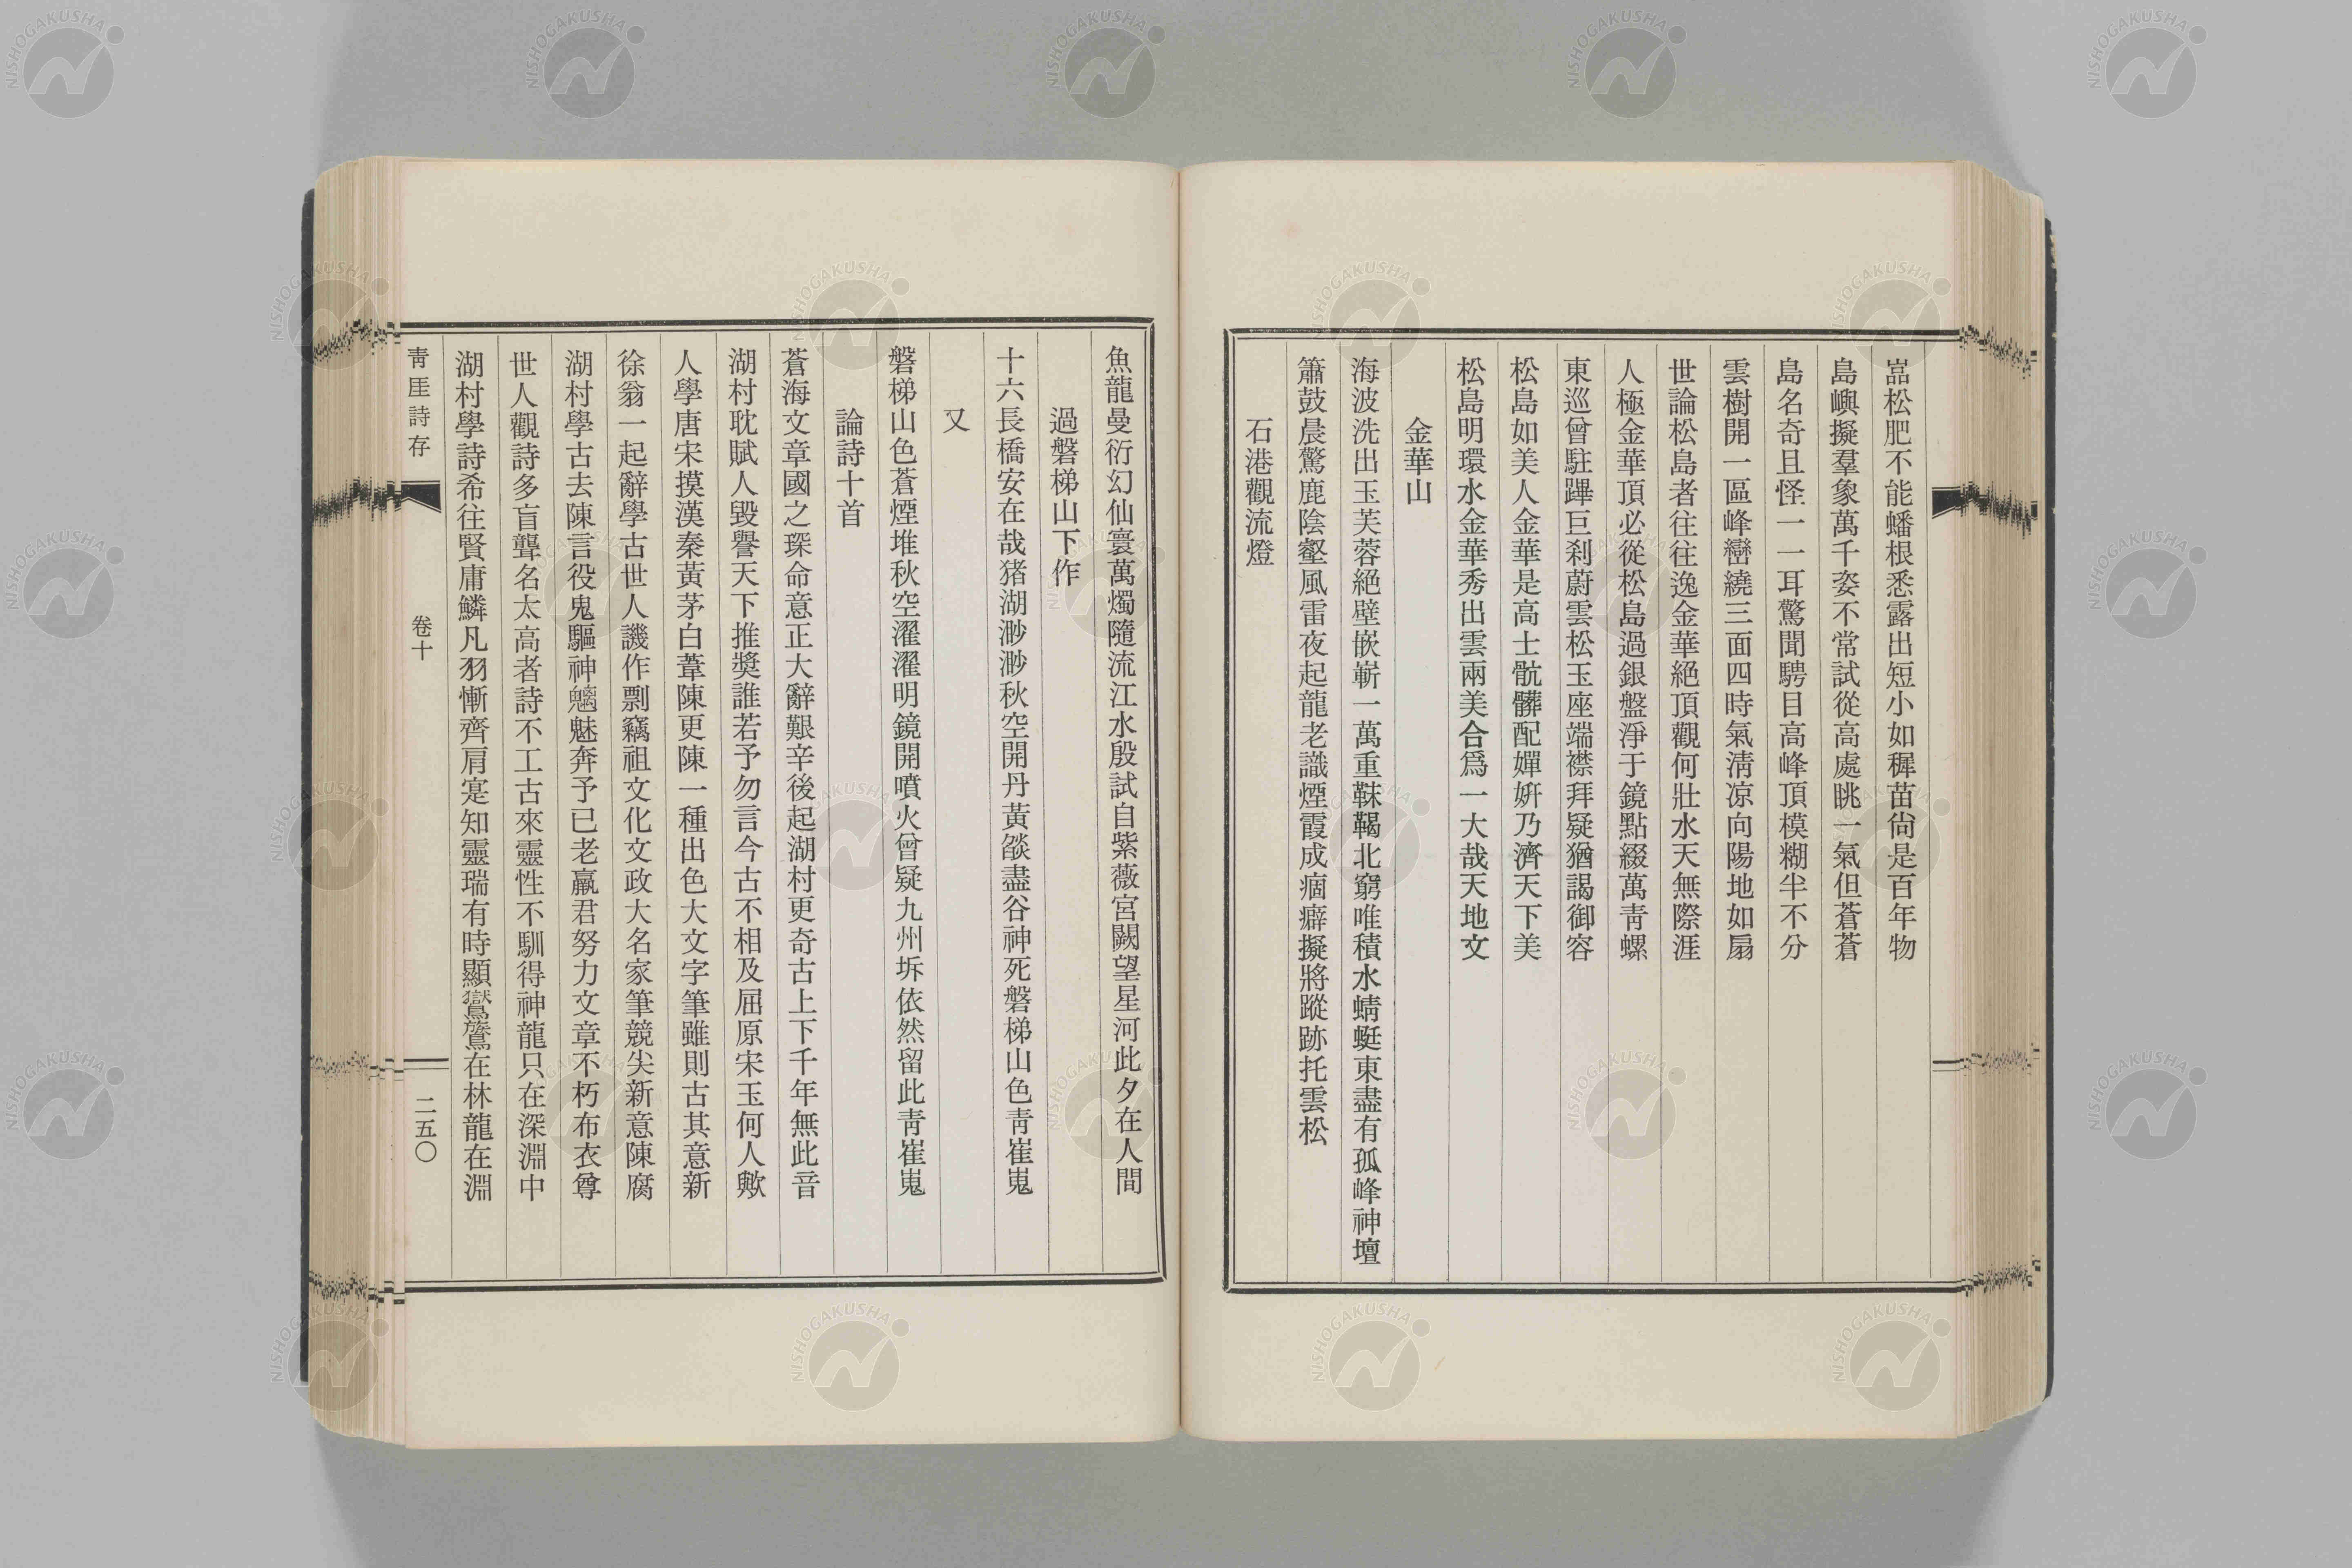 嵓松肥不能蟠根悉露出短小如穉苗尙是百年物
島嶼擬羣象萬千姿不常試從高處眺一氣但蒼蒼
島名奇且怪一一耳驚聞騁目高峰頂模糊半不分
雲樹開一區峰巒繞三面四時氣淸凉向陽地如扇
世論松島者往往逸金華絕頂觀何壯水天無際涯
人極金華頂必從松島過銀盤淨于鏡點綴萬靑螺
東巡曾駐蹕巨刹蔚雲松玉座端襟拜疑猶謁御容
松島如美人金華是高士骯髒配嬋姸乃濟天下美
松島明環水金華秀出雲兩美合爲一大哉天地文
金華山
海波洗出玉芙蓉絕壁嵌嶄一萬重靺鞨北窮唯積水蜻蜓東盡有孤峰神壇
簫鼓晨驚鹿陰壑風雷夜起龍老識煙霞成痼癖擬將蹤跡托雲松
石港觀流燈
魚龍曼衍幻仙寰萬燭隨流江水殷試自紫薇宮闕望星河此夕在人間
過磐梯山下作
十六長橋安在哉猪湖渺渺秋空開丹黃燄盡谷神死磐梯山色靑崔嵬
又
磐梯山色蒼煙堆秋空濯濯明鏡開噴火曾疑九州坼依然留此靑崔嵬
論詩十首
蒼海文章國之琛命意正大辭艱辛後起湖村更奇古上下千年無此音
湖村耽賦人毀譽天下推奬誰若予勿言今古不相及屈原宋玉何人歟
人學唐宋摸漢秦黃茅白葦陳更陳一種出色大文字筆雖則古其意新
徐翁一起辭學古世人譏作剽竊祖文化文政大名家筆競尖新意陳腐
湖村學古去陳言役鬼驅神魑魅奔予已老羸君努力文章不朽布衣尊
世人觀詩多盲聾名太高者詩不工古來靈性不馴得神龍只在深淵中
湖村學詩希往賢庸鱗凡羽慚齊肩寔知靈瑞有時顯鸑鷟在林龍在淵
靑厓詩存
卷十
二五〇
NISHOGAKUSHA